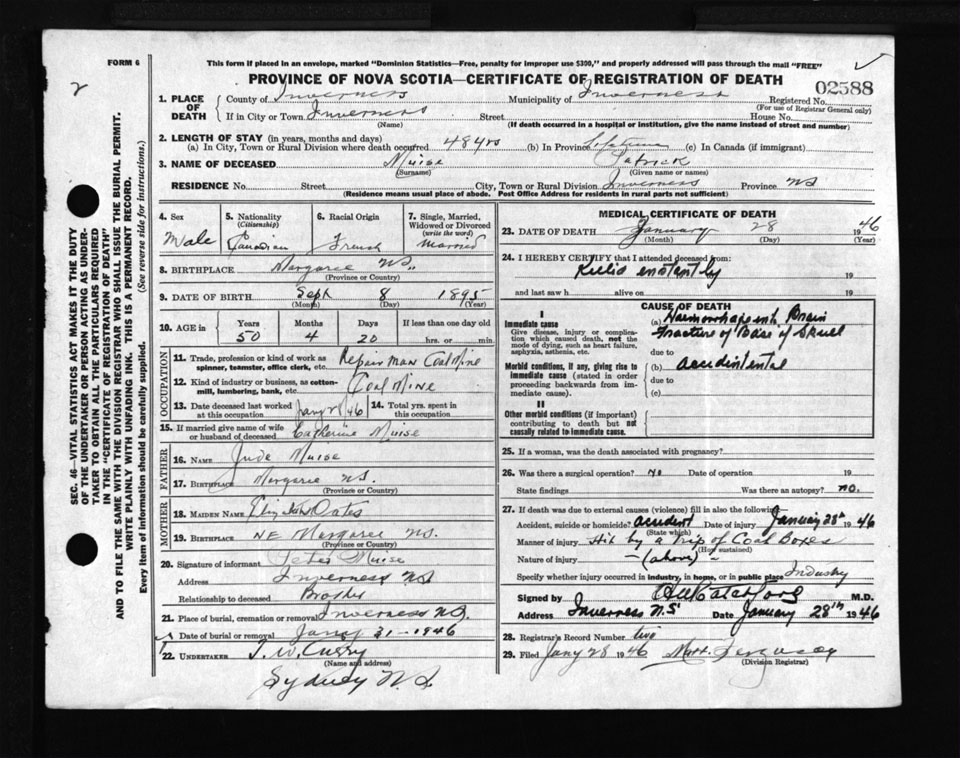 This form if placed in an envelope, marked "Dominion Statistics—Free, penalty for improper use $300," and properly addressed will pass through the mail "FREE"
FORM 6
PROVINCE OF NOVA SCOTIA—CERTIFICATE OF REGISTRATION OF DEATH
2
02588
1. PLACE OF DEATH
County of Inverness Municipality of Inverness Registered No.
(For use of Registrar General only)
If in City or Town Inverness Street House No.
(Name) (If death occurred in a hospital or institution, give the name instead of street and number)
2. LENGTH OF STAY (in years, months and days)
(a) In City, Town or Rural Division where death occurred 48 yrs (b) In Province Lifetime (c) In Canada (if immigrant)
3. NAME OF DECEASED Muise Patrick
(Surname) (Given name or names)
RESIDENCE No. Street City, Town or Rural Division Inverness Province NS
(Residence means usual place of abode. Post Office Address for residents in rural parts not sufficient)
SEC. 46—VITAL STATISTICS ACT MAKES IT THE DUTY
OF THE UNDERTAKER OR PERSON ACTING AS UNDER-
TAKER TO OBTAIN ALL THE PARTICULARS REQUIRED
IN THE "CERTIFICATE OF REGISTRATION OF DEATH"
AND TO FILE THE SAME WITH THE DIVISION REGISTRAR WHO SHALL ISSUE THE BURIAL PERMIT.
WRITE PLAINLY WITH UNFADING INK. THIS IS A PERMANENT RECORD.
Every item of information should be carefully supplied. (See reverse side for instructions.)
4. Sex Male
5. Nationality (Citizenship) Canadian
6. Racial Origin French
7. Single, Married, Widowed or Divorced (write the word) Married
8. BIRTHPLACE Margaree NS
(Province or Country)
9. DATE OF BIRTH Sept 8 1895
(Month) (Day) (Year)
10. AGE in Years Months Days If less than one day old
50 4 20 hrs. or min.
OCCUPATION
11. Trade, profession or kind of work as spinner, teamster, office clerk, etc. Repair Man Coal Mine
12. Kind of industry or business, as cotton-mill, lumbering, bank, etc. Coal Mine
13. Date deceased last worked at this occupation /46
14. Total yrs. spent in this occupation
15. If married give name of wife or husband of deceased Catherine Muise
FATHER
16. NAME Jude Muise
17. BIRTHPLACE Margaree NS.
(Province or Country)
MOTHER
18. MAIDEN NAME Oates
19. BIRTHPLACE NE Margaree NS.
(Province or Country)
20. Signature of informant Peter Muise
Address Inverness NS
Relationship to deceased Brother
21. Place of burial, cremation or removal Inverness NS.
Date of burial or removal Jany 31-1946
22. UNDERTAKER T. W. Curry
(Name and address)
Sydney N.S
MEDICAL CERTIFICATE OF DEATH
23. DATE OF DEATH January 28 1946
(Month) (Day) (Year)
24. I HEREBY CERTIFY that I attended deceased from
Killed enstantly 19
and last saw h alive on 19
CAUSE OF DEATH
I
Immediate cause
Give disease, injury, or complication which caused death, not the mode of dying, such as heart failure, asphyxia, asthenia, etc.
(a) Brain
Fracture of Base of Skull
due to
Morbid conditions, if any, giving rise to immediate cause (stated in order proceeding backwards from immediate cause).
(b) accidentental
due to
(c)
II
Other morbid conditions (if important) contributing to death but not causally related to immediate cause.
25. If a woman, was the death associated with pregnancy?
26. Was there a surgical operation? no Date of operation 19
State findings Was there an autopsy? no.
27. If death was due to external causes (violence) fill in also the following—
Accident, suicide or homicide? accident Date of injury January 28th 1946
(State which)
Manner of injury Hit by a trip of Coal Boxes
(How sustained)
Nature of injury - (above) -
Specify whether injury occurred in industry, in home, or in public place Industry
Signed by M.D.
Address Inverness N.S. Date January 28th 1946
28. Registrar's Record Number two
29. Filed Jany 28 1946 Matt. Ferguson
(Division Registrar)